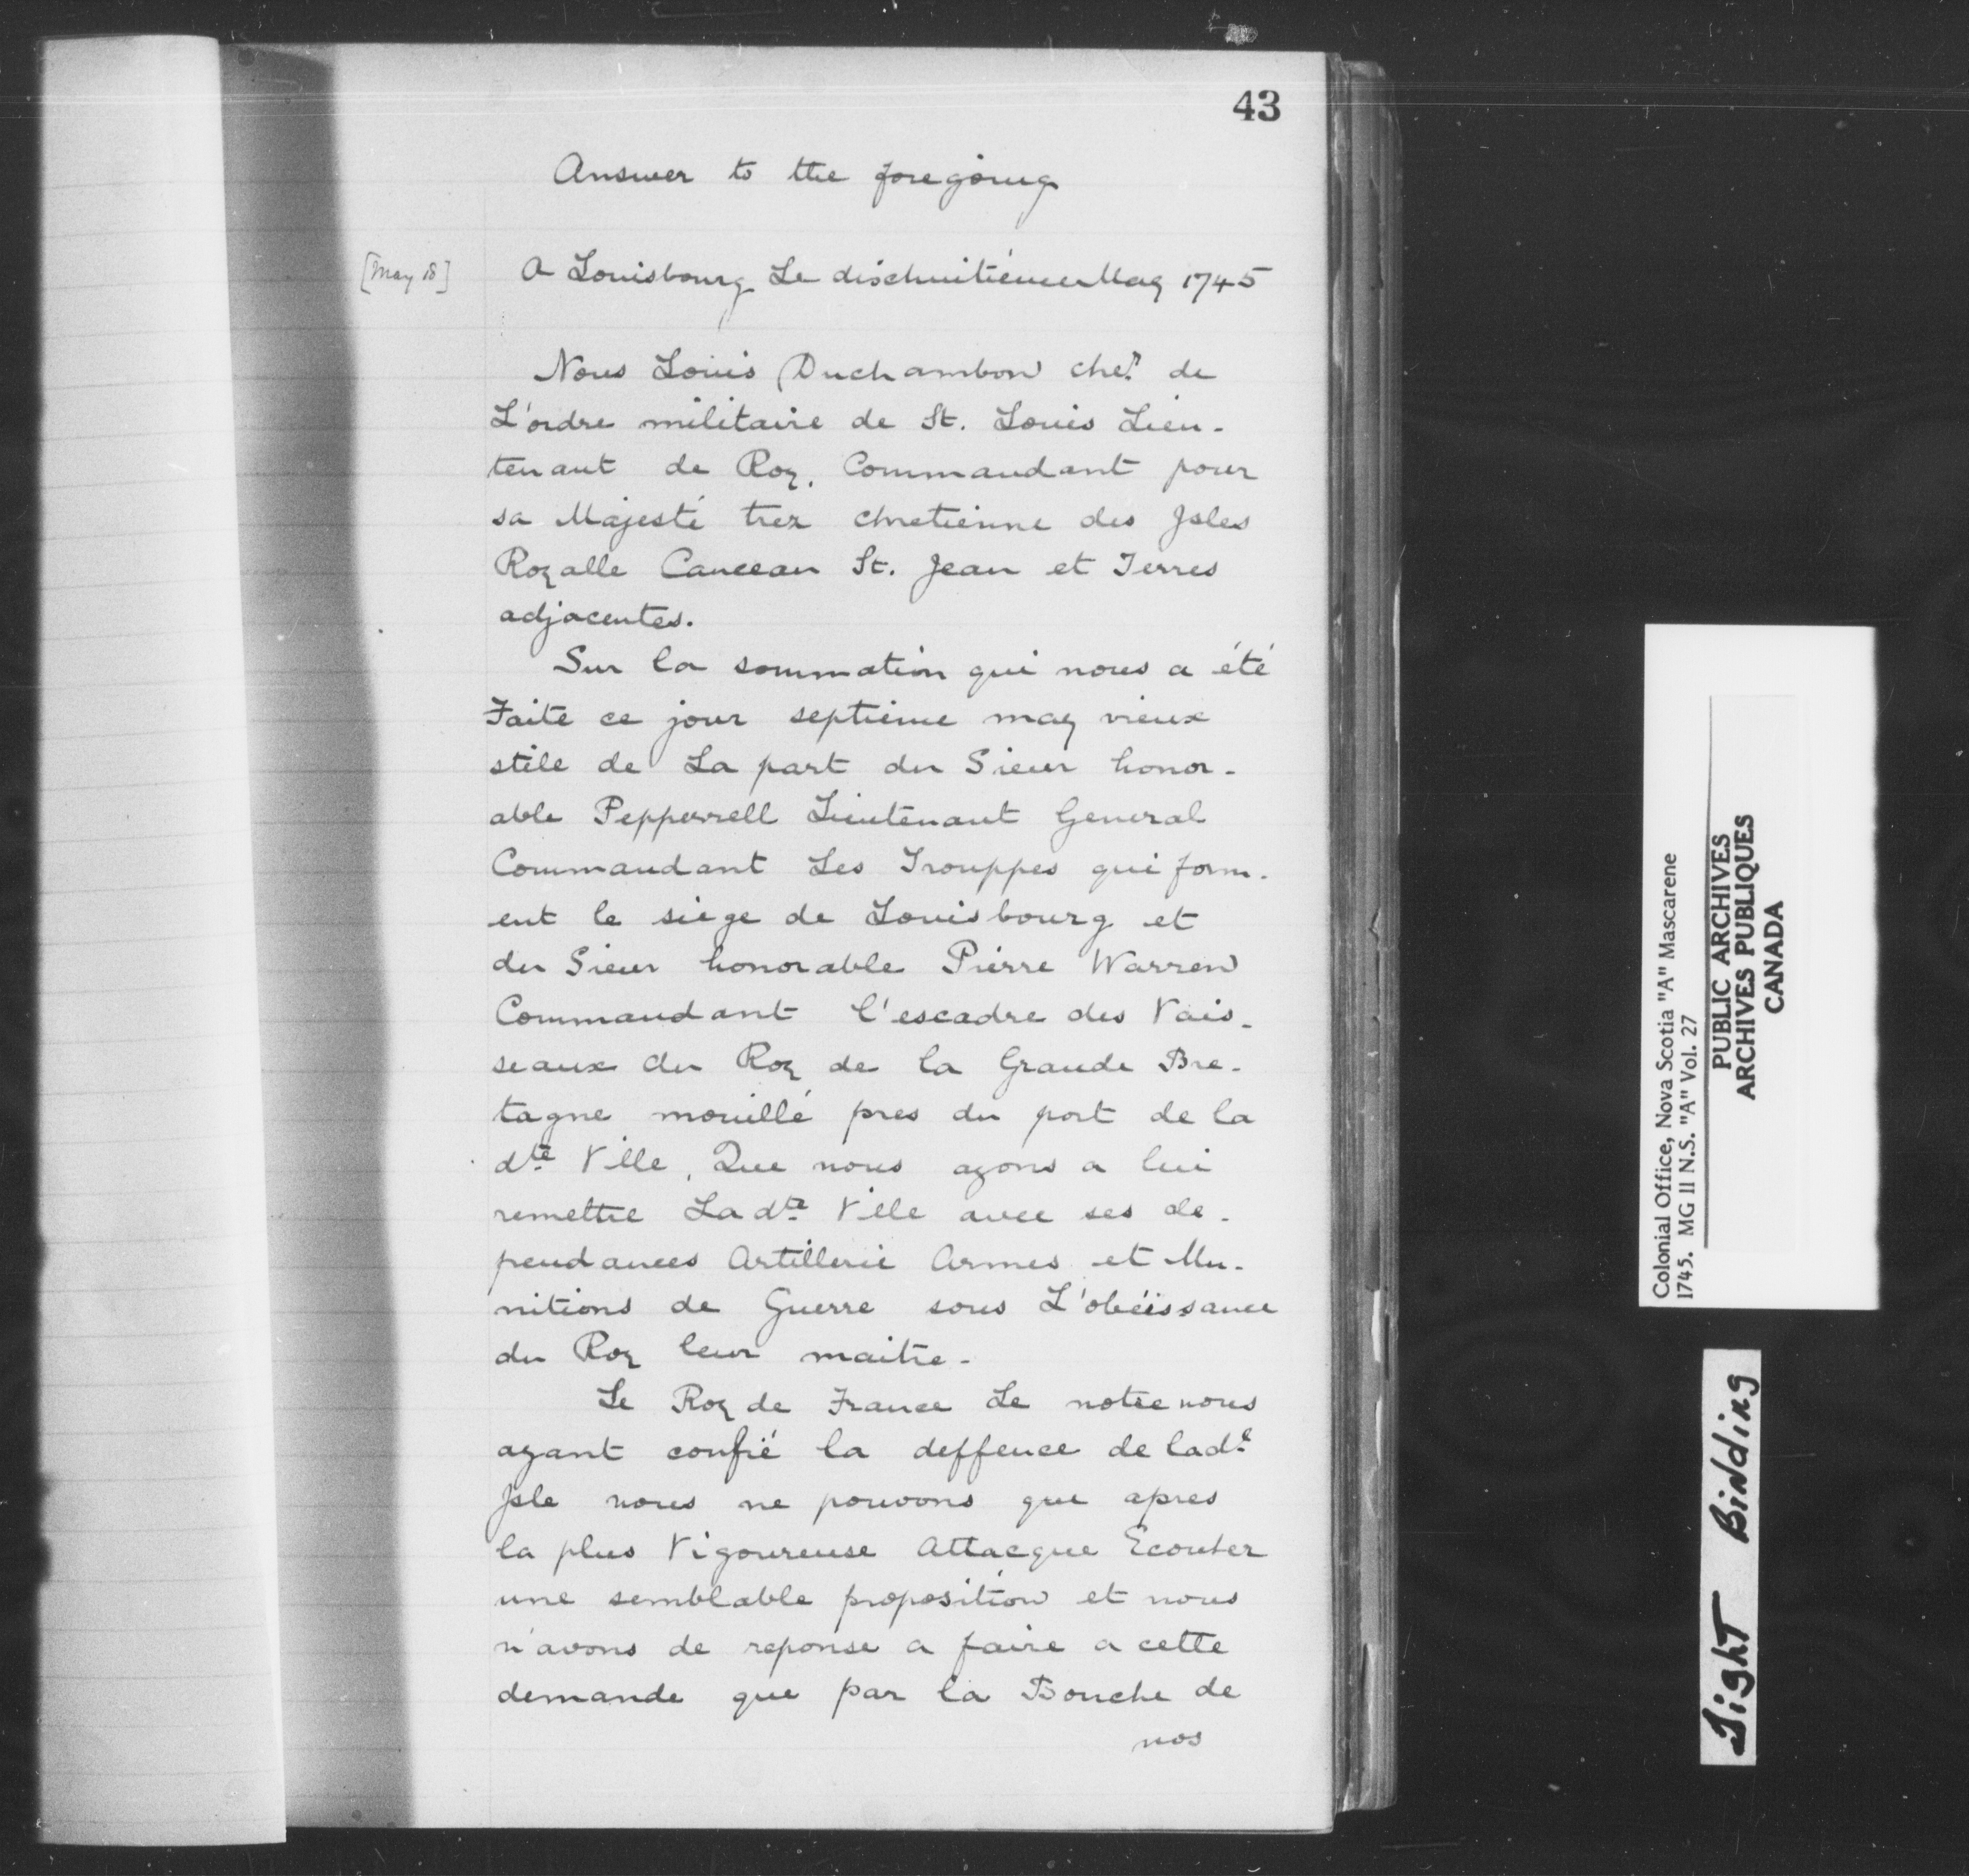 43
Answer to the foregoing
[May 18]
A Louisbourg Le dischuitiéme May 1745
Nous Louis Duchambon cher. de
L'ordre militaire de St. Louis Lieu-
tenant de Roy, Commandant pour
sa Majesté trez chretienne des Jsles
Royalle Canceau St. Jean et Terres
adjacentes.
Sur la sommation qui nous a été
Faite ce jour septieme may vieux
stile de La part du Sieur honor-
able Pepperrell Lieutenant General
Commandant Les Trouppes qui form-
ent le siege de Louisbourg et
du Sieur honorable Pierre Warren
Commandant l'escadre des Vais-
seaux du Roy de la Grande Bre-
tagne mouillé pres du port de la
dte Ville, Que nous ayons a lui
remettre Ladte Ville avec ses de-
pendances Artillerie Armes et Mu-
nitions de Guerre sous L'obéissance
du Roy leur maitre-
Le Roy de France Le notre nous
ayant confié la deffence de lade
Jsle nous ne pouvons que apres
la plus Vigoureuse Attacque Ecouter
une semblable proposition et nous
n'avons de reponse a faire a cette
demande que par la Bouche de
nos
Colonial Office, Nova Scotia "A" Mascarene
1745. MG 11 N.S. "A" Vol. 27
PUBLIC ARCHIVES
ARCHIVES PUBLIQUES
CANADA
Tight Bidding